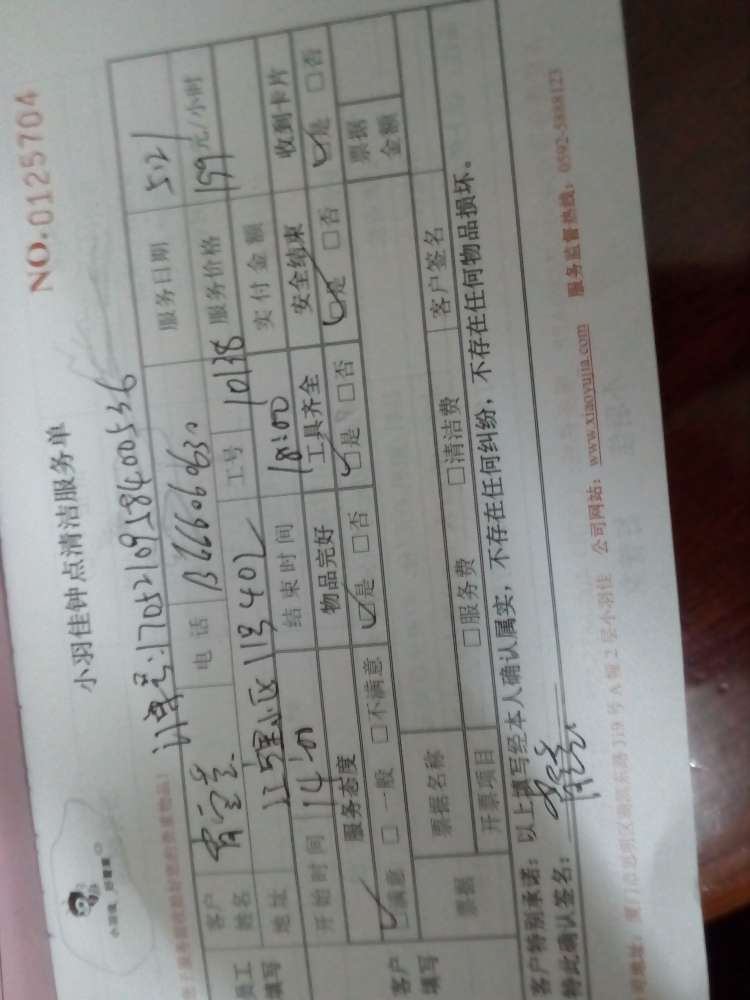 NO.0125704
小羽佳钟点清洁服务单
订单号:1705210958400536
客户姓名 电话 服务日期 5.21
工号 10138 服务价格 199 元/小时
地址 11号402 实付金额
开始时间 14:00 结束时间 18:00
服务态度 物品完好 工具齐全 安全结束 收到卡片
☑满意 □一般 □不满意 ☑是 □否 ☑是 □否 ☑是 □否 ☑是 □否
员工填写
客户填写
票据 票据名称 票据金额
开票项目 □服务费 □清洁费 客户签名
客户特别承诺:以上填写经本人确认属实,不存在任何纠纷,不存在任何物品损坏。
特此确认签名:
公司网站:www.xiaoyujia.com 服务监督热线:0592-5888123